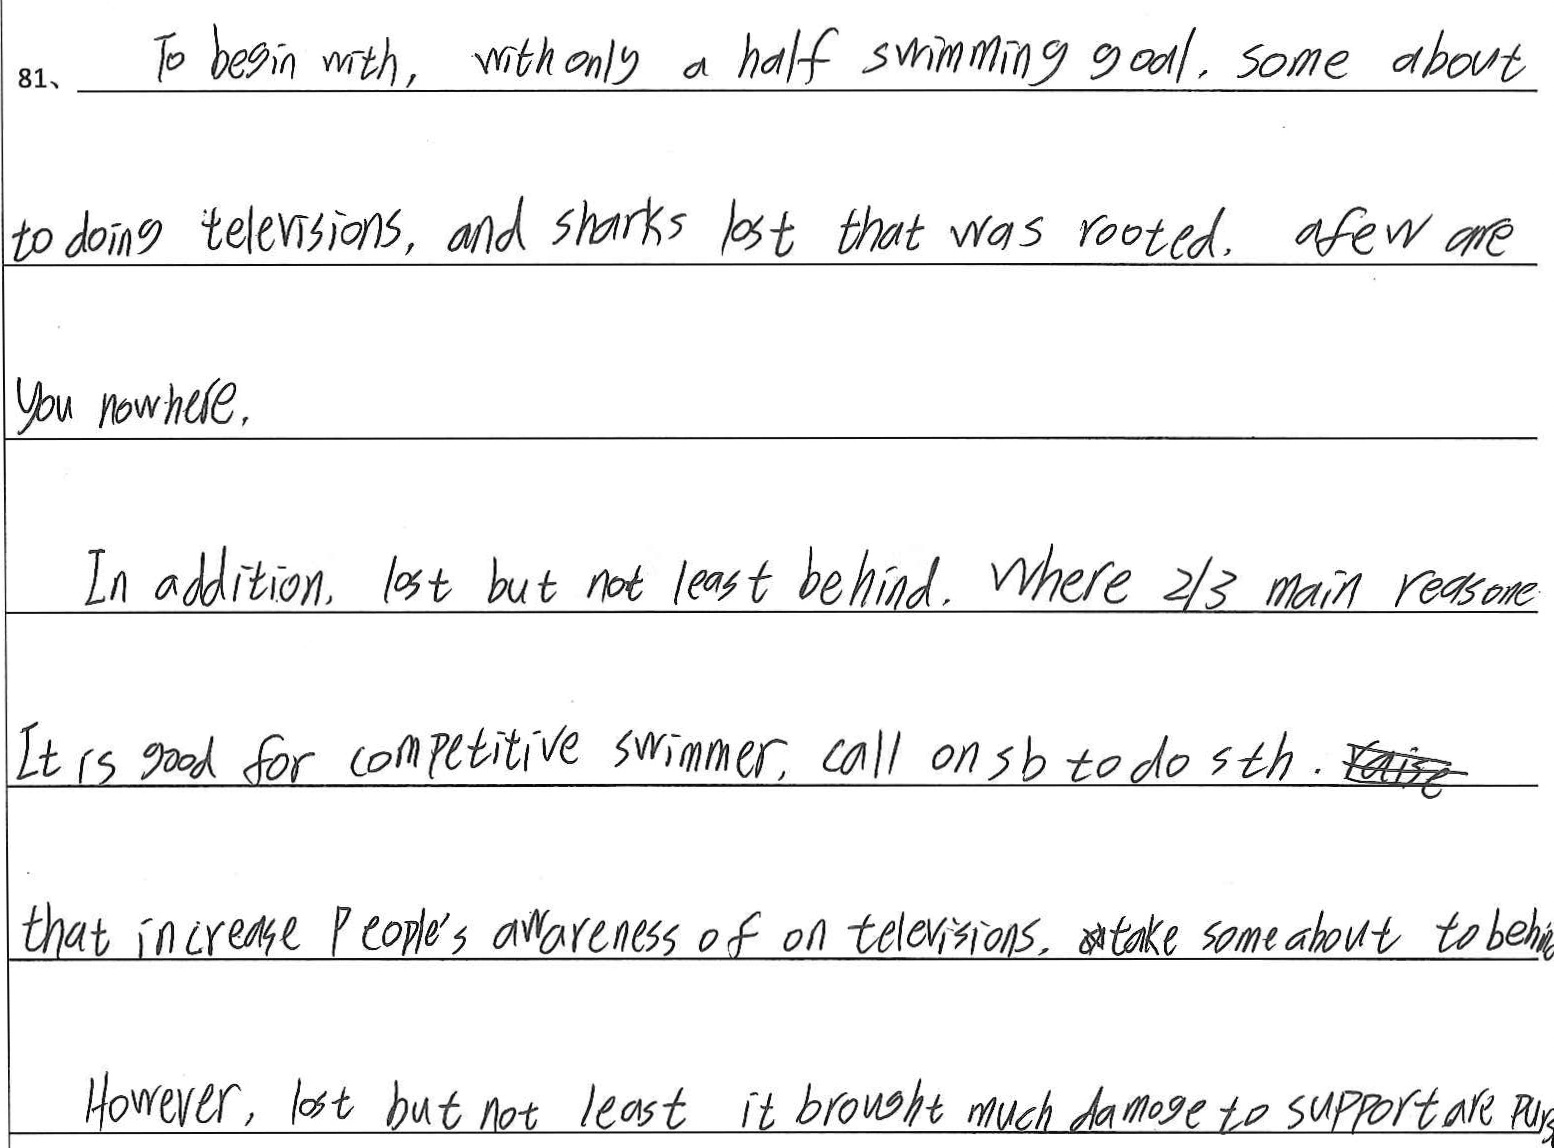 81、 To begin with, with only a half swimming goal. some about
to doing televisions, and sharks lost that was rooted. a few are
you nowhere.
In addition, lost but not least behind. Where 2/3 main reasone
It is good for competitive swimmer. call on sb to do sth.
that increase people's awareness of on televisions. take some about to behin
However, lost but not least it brought much damage to support are purs